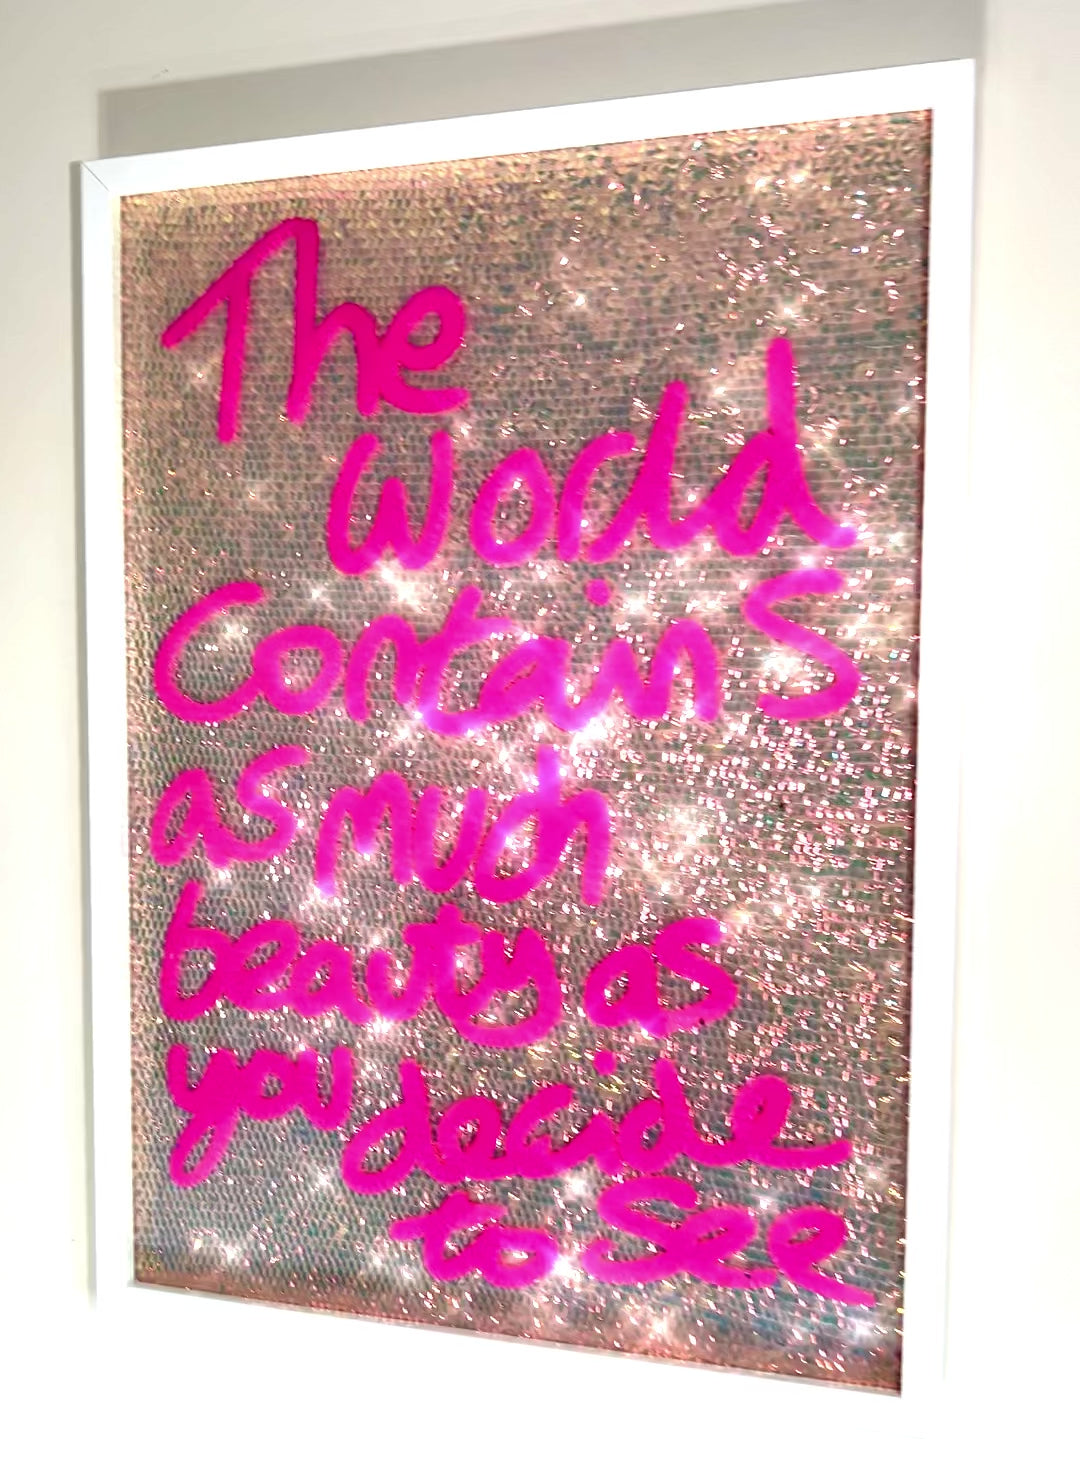 The
World
ContainS
as much
beauty as
you decide
to See